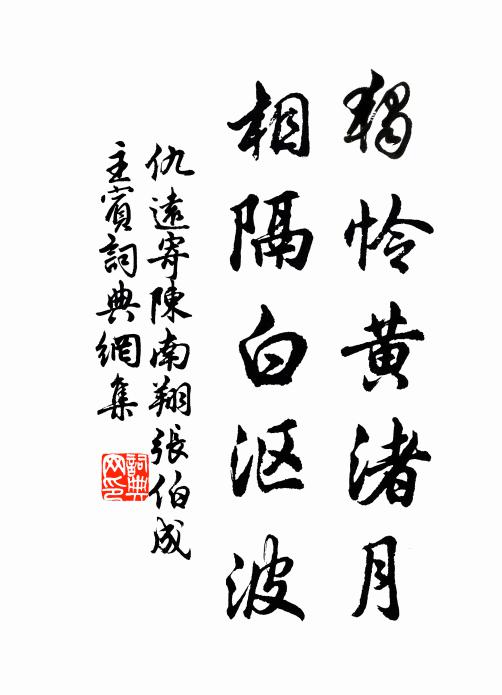 獨怜黄渚月
相隔白沤波
仇遠寄陳南翔張伯成
主賓詞典網集
詞典網印